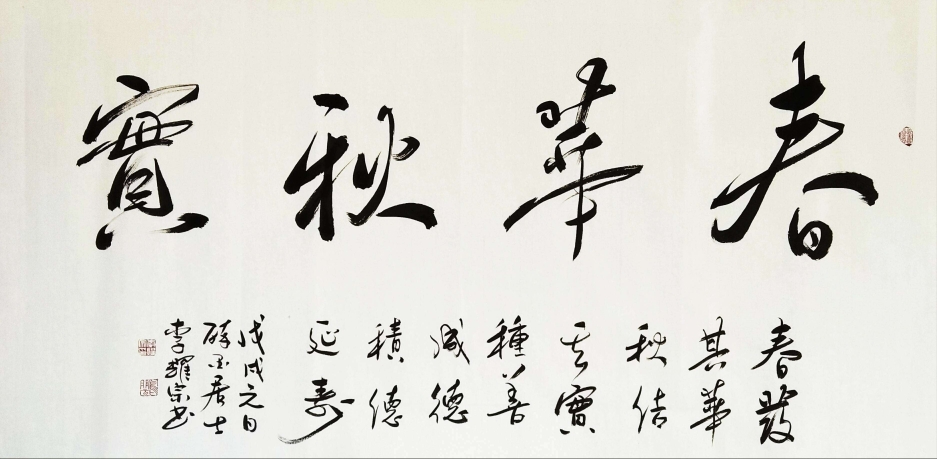 春華秋實
春發
其華
秋結
其實
種善
減德
積德
延壽
戊戌元日
醉墨居士
李耀宗書